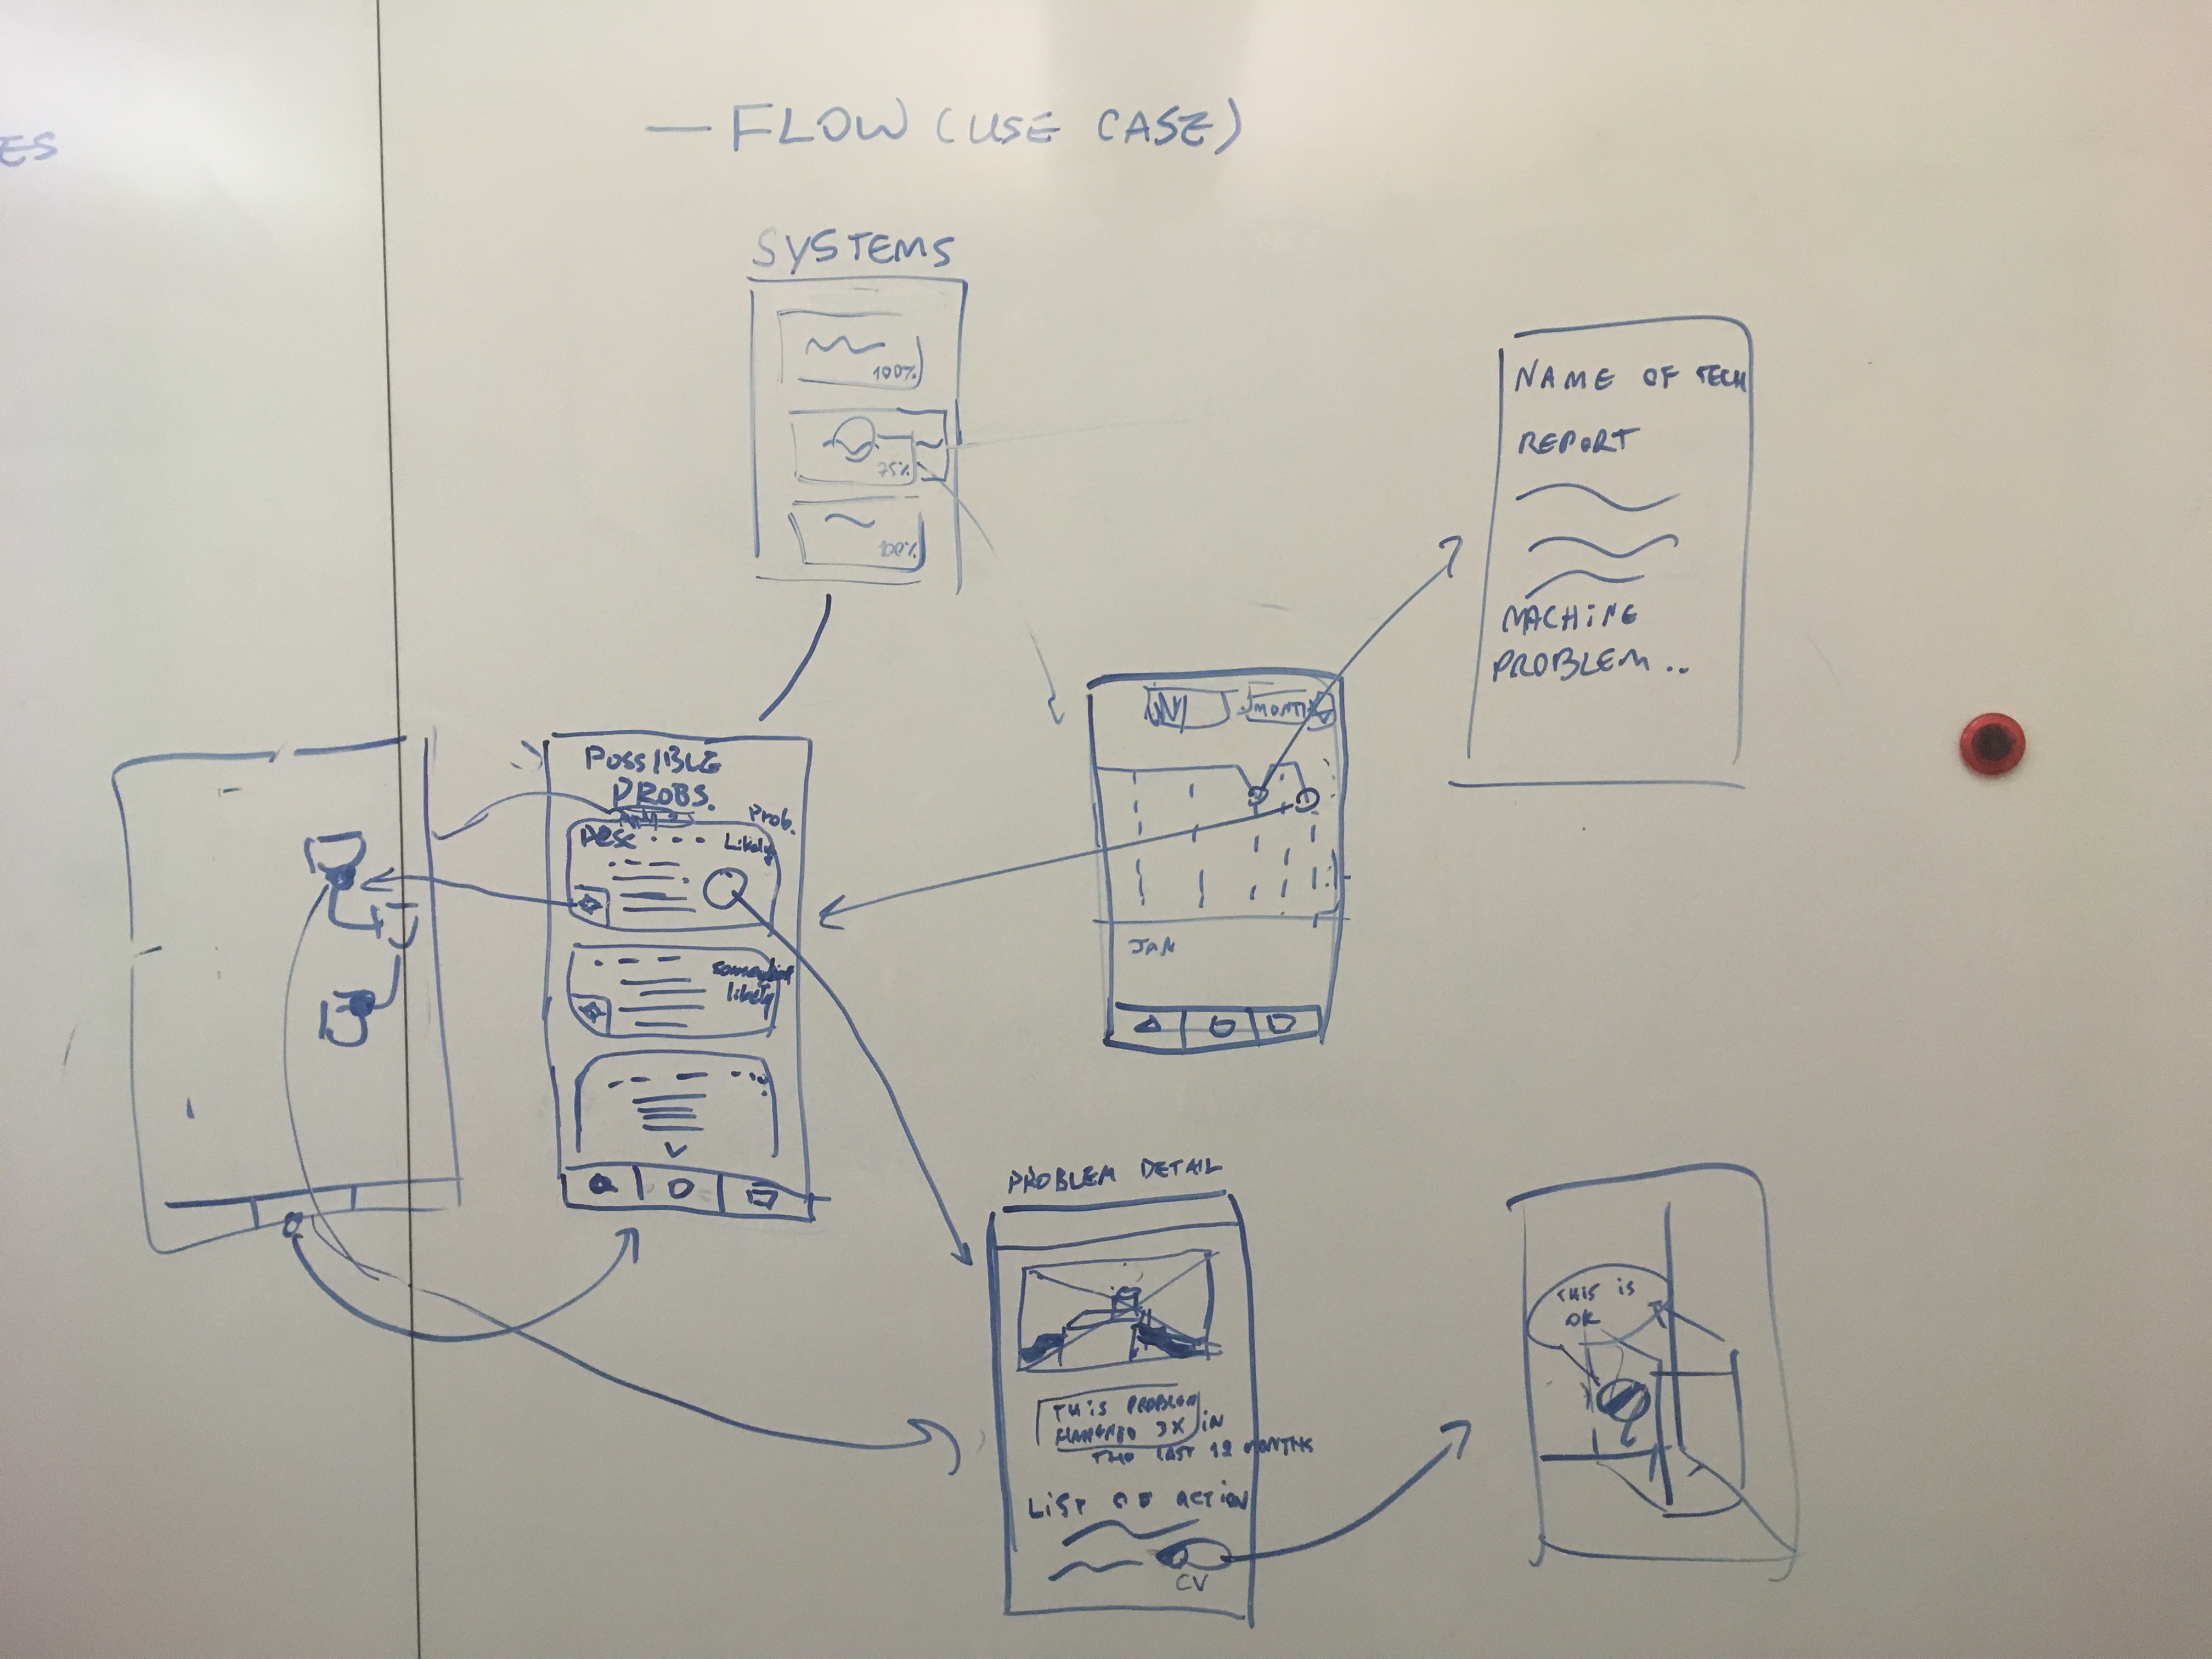 ES
— FLOW (USE CASE)
SYSTEMS
100%
75%
100%
NAME OF TECH
REPORT
MACHINE
PROBLEM ..
MONTH
JAN
POSSIBLE
PROBS.
Prob.
DESC
Likely
somewhat
likely
PROBLEM DETAIL
THIS PROBLEM
3X IN
THE LAST 12 MONTHS
LIST OF ACTION
CV
THIS IS
OK